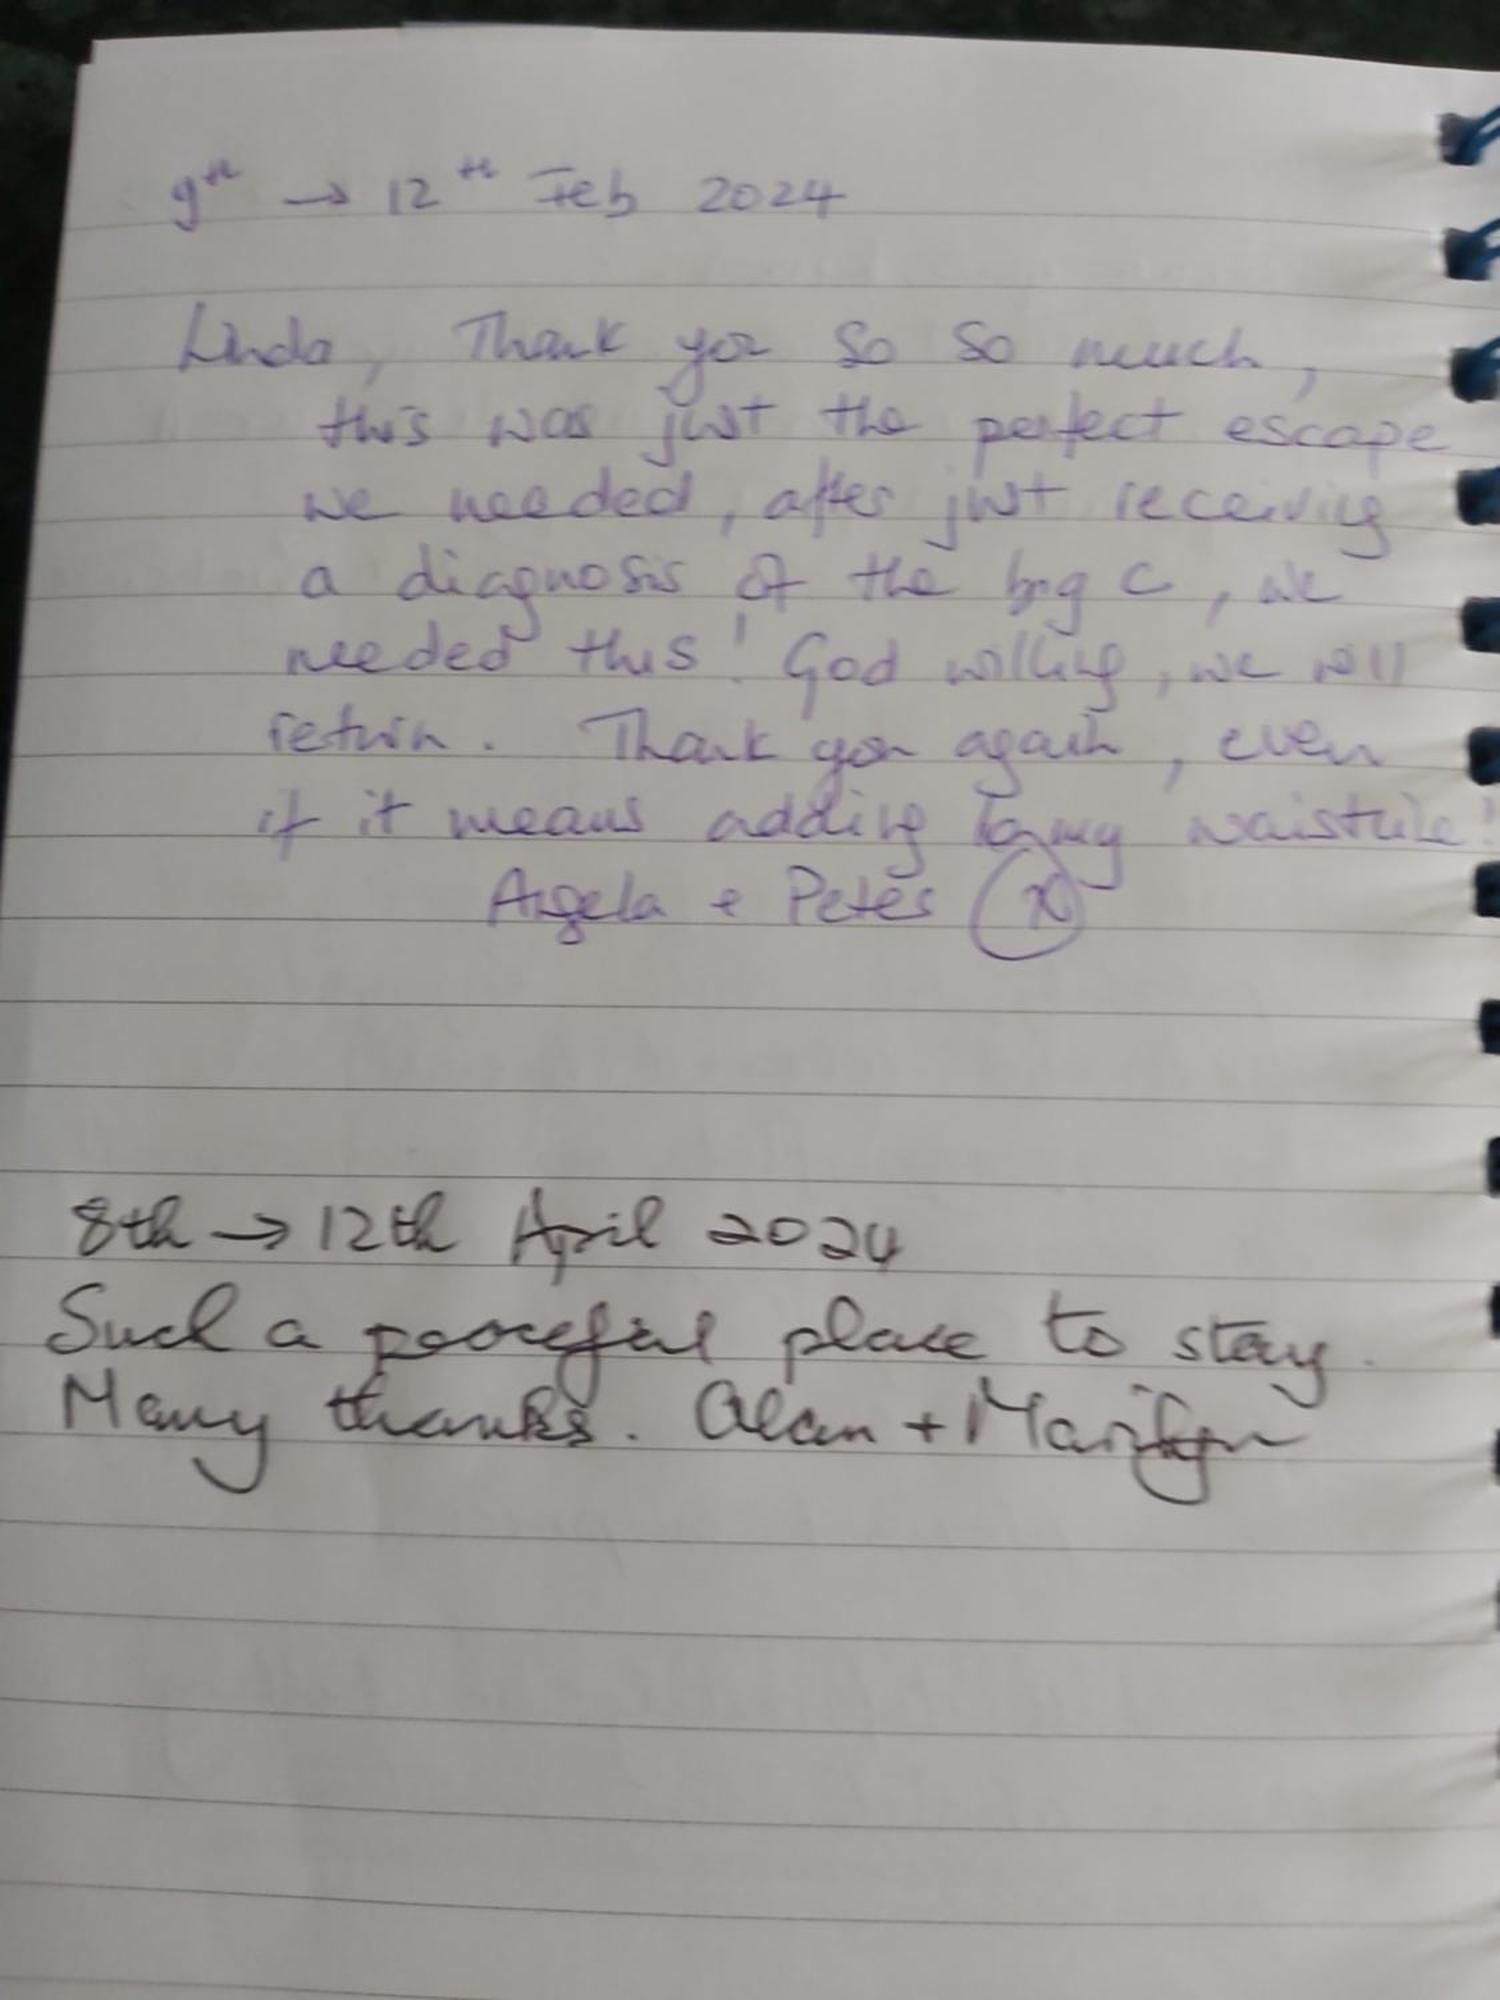 9th → 12th Feb 2024
Linda, Thank you so so much,
this was just the perfect escape
we needed, after just receiving
a diagnosis of the big C, we
needed this! God willing, we will
return. Thank you again, even
if it means adding to my waistline!
Angela + Peter x
8th → 12th April 2024
Such a peaceful place to stay.
Many thanks. Alan + Marilyn